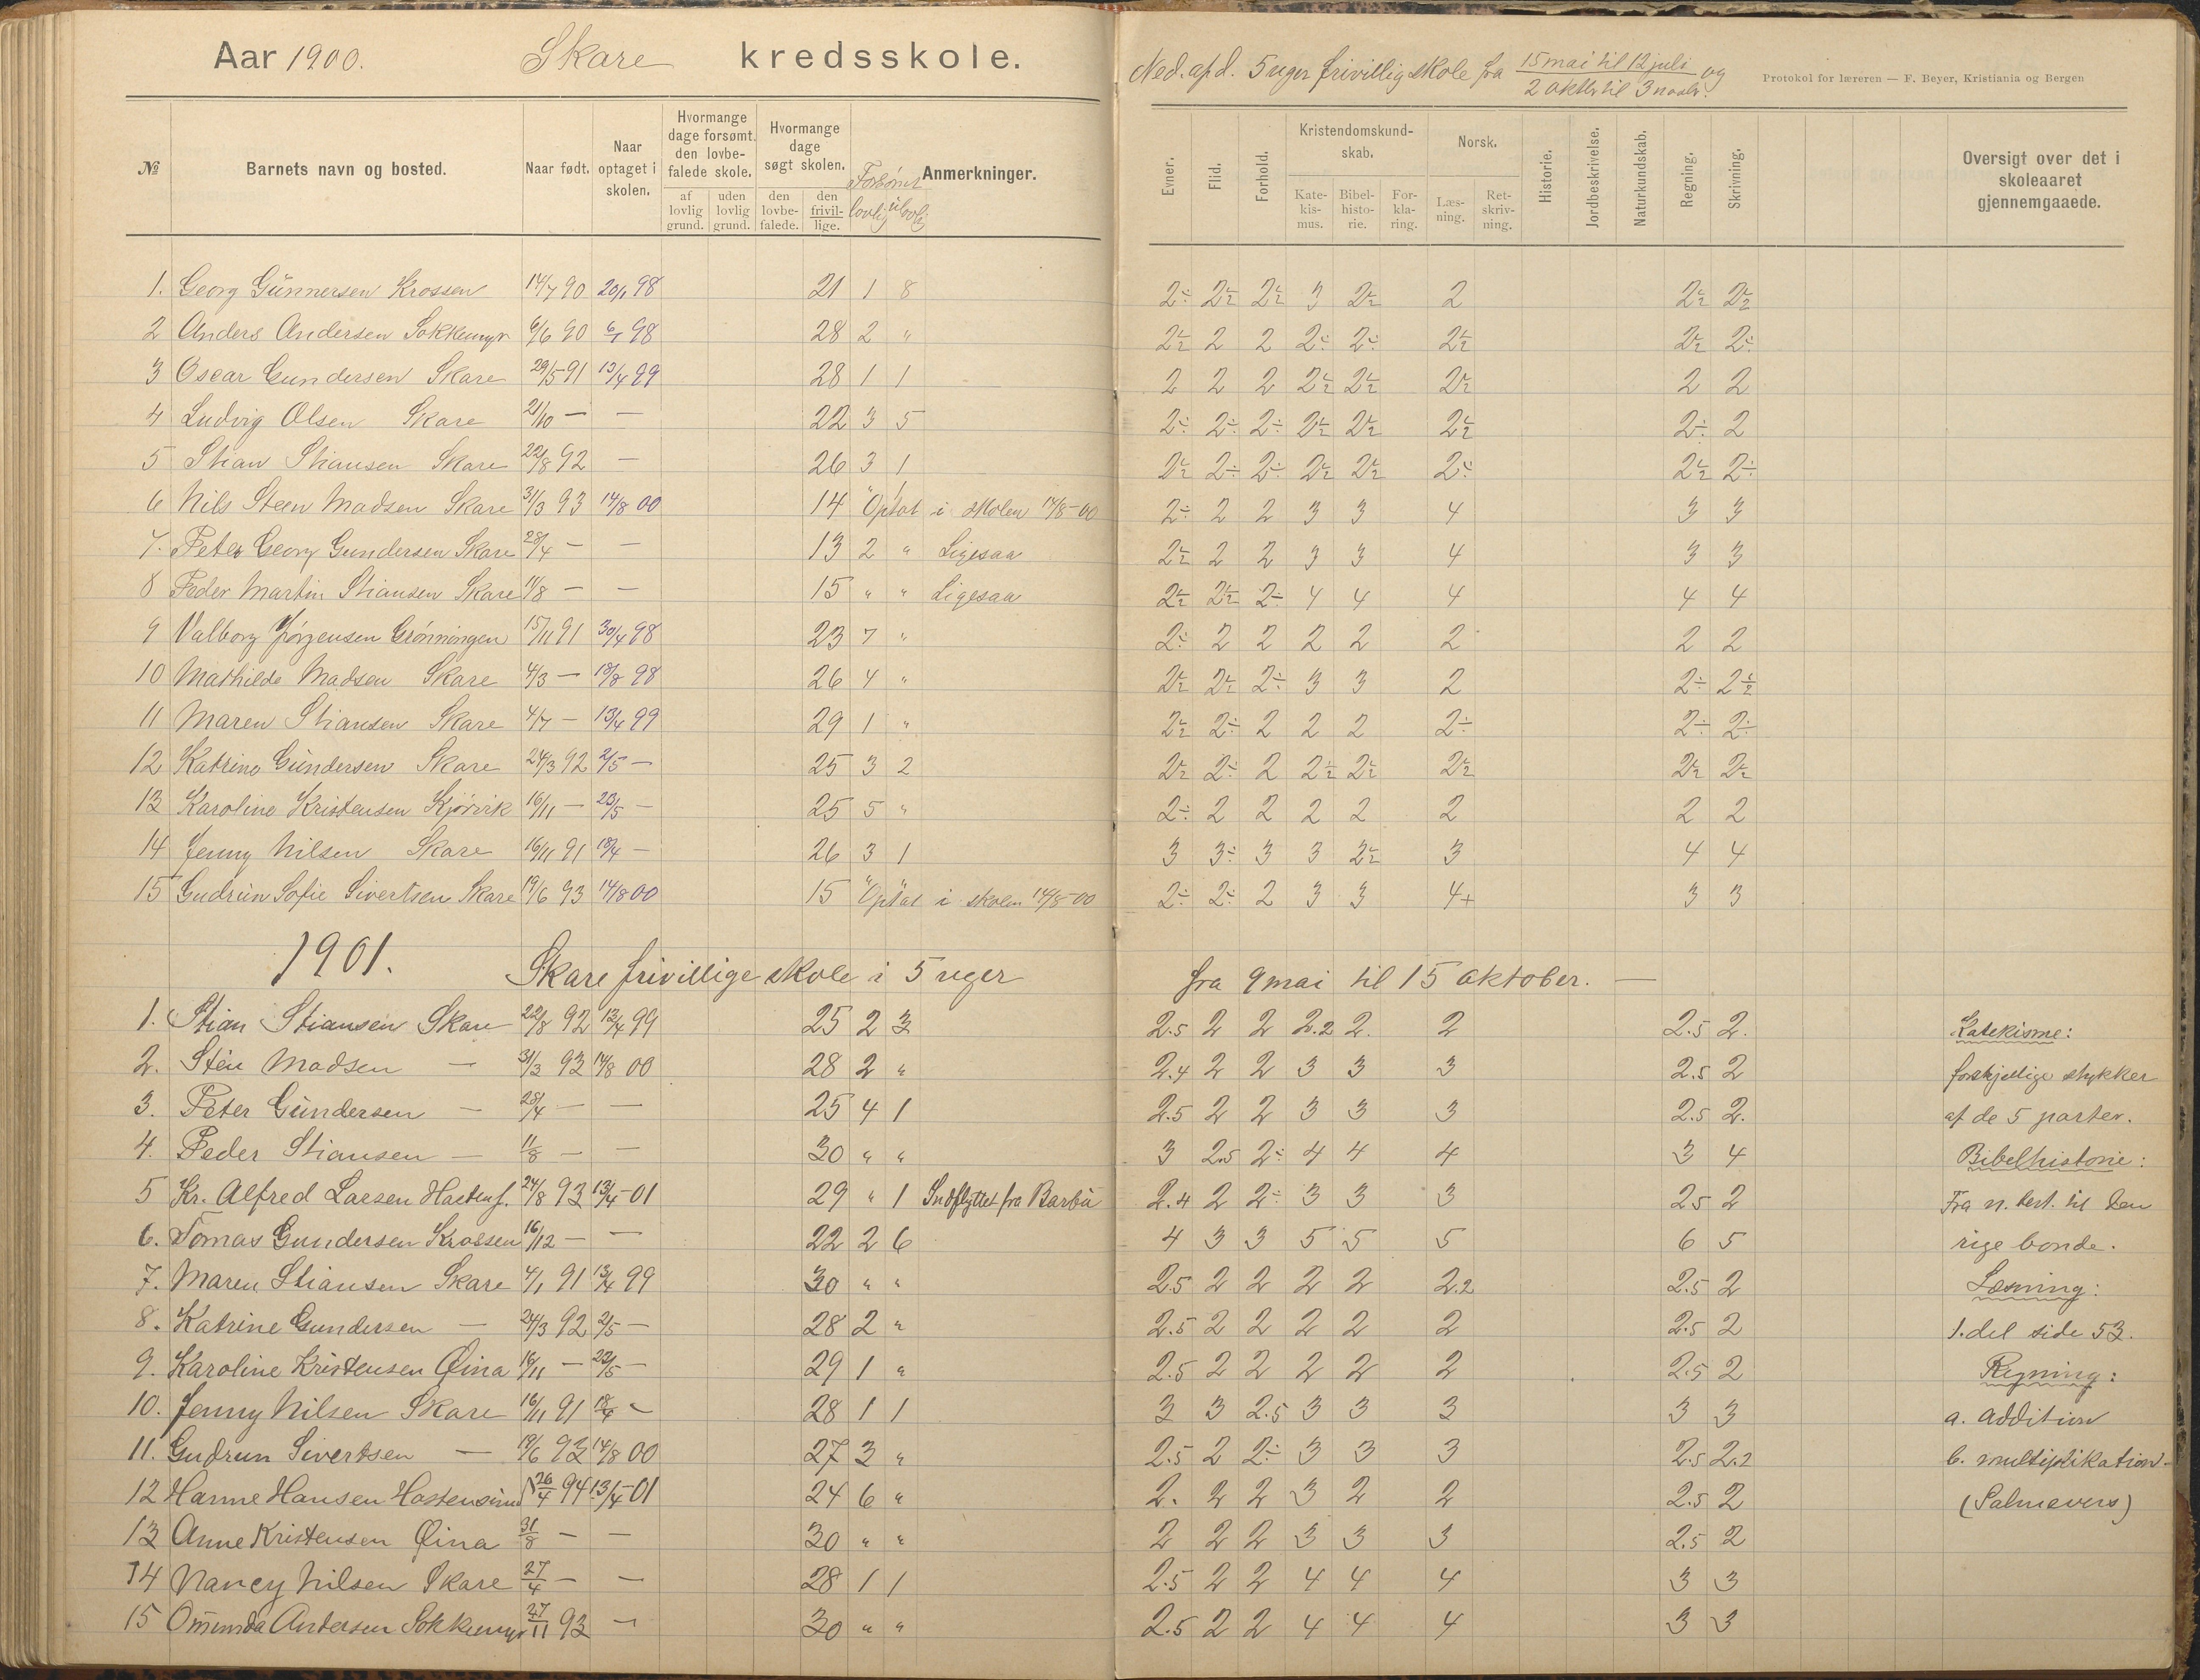 Aar 1900. Skare kredsskole.
Ned. afd. 5 uger frivillig skole fra 15 mai til 12 juli og
2 oktbr til 3 novbr.
Protokol for læreren — F. Beyer, Kristiania og Bergen
№ Barnets navn og bosted. Naar født. Naar optaget i skolen. Hvormange dage forsømt den lovbefalede skole. af lovlig grund. uden lovlig grund. Hvormange dage søgt skolen. den lovbefalede. den frivillige. Forsømt lovlig ulovlig Anmerkninger.
Evner. Flid. Forhold. Kristendomskundskab. Katekismus. Bibelhistorie. Forklaring. Norsk. Læsning. Retskrivning. Historie. Jordbeskrivelse. Naturkundskab. Regning. Skrivning. Oversigt over det i skoleaaret gjennemgaaede.
1. Georg Gunnersen Krossen 14/7 90 20/1 98 21 1 8 2÷ 2½ 2½ 3 2½ 2 2½ 2½
2 Anders Andersen Sokkemyr 6/6 90 6/1 98 28 2 " 2½ 2 2 2÷ 2÷ 2½ 2½ 2÷
3 Oscar Gundersen Skare 29/5 91 13/4 99 28 1 1 2 2 2 2½ 2½ 2½ 2 2
4 Ludvig Olsen Skare 21/10 — — 22 3 5 2÷ 2÷ 2÷ 2½ 2½ 2½ 2÷ 2
5 Stian Stiansen Skare 22/8 92 — 26 3 1 2½ 2÷ 2÷ 2½ 2½ 2÷ 2½ 2÷
6 Nils Steen Madsen Skare 31/3 93 14/8 00 14 " Optat i skolen 14/8-00 2÷ 2 2 3 3 4 3 3
7. Peter Georg Gundersen Skare 28/4 — — 13 2 " Ligesaa 2½ 2 2 3 3 4 3 3
8 Peder Martin Stiansen Skare 11/8 — — 15 " " Ligesaa 2½ 2½ 2÷ 4 4 4 4 4
9 Valborg Jørgensen Grønningen 15/11 91 30/4 98 23 7 " 2÷ 2 2 2 2 2 2 2
10 Mathilde Madsen Skare 4/3 — 18/8 98 26 4 " 2½ 2½ 2÷ 3 3 2 2÷ 2½
11 Maren Stiansen Skare 4/7 — 13/4 99 29 1 " 2½ 2÷ 2 2 2 2÷ 2÷ 2÷
12 Katrine Gundersen Skare 24/3 92 2/5 — 25 3 2 2½ 2÷ 2 2½ 2½ 2½ 2½ 2½
13 Karoline Kristensen Kjørvik 16/11 — 23/5 — 25 5 " 2÷ 2 2 2 2 2 2 2
14 Jenny Nilsen Skare 16/11 91 18/4 — 26 3 1 3 3÷ 3 3 2½ 3 4 4
15 Gudrun Sofie Sivertsen Skare 19/6 93 14/8 00 15 " " Optat i skolen 14/8-00 2÷ 2÷ 2 3 3 4+ 3 3
1901. Skare frivillige skole i 5 uger fra 9 mai til 15 oktober. —
1. Stian Stiansen Skare 22/8 92 13/4 99 25 2 3 2.5 2 2 2.2 2. 2 2.5 2. Katekisme:
2. Sten Madsen — 31/3 93 14/8 00 28 2 " 2.4 2 2 3 3 3 2.5 2 forskjellige stykker
3. Peter Gundersen — 28/4 — — 25 4 1 2.5 2 2 3 3 3 2.5 2. af de 5 parter.
4. Peder Stiansen — 11/8 — — 30 " " 3 2.5 2÷ 4 4 4 3 4 Bibelhistorie:
5 Kr. Alfred Larsen Hastens. 24/8 93 13/4-01 29 " 1 Indflyttet fra Barbu 2.4 2 2÷ 3 3 3 2.5 2 Fra n. test. til Den
6. Tomas Gundersen Krossen 16/12 — — 22 2 6 4 3 3 5 5 5 6 5 rige bonde.
7. Maren Stiansen Skare 4/1 91 13/4 99 30 " " 2.5 2 2 2 2 2.2 2.5 2 Læsning:
8. Katrine Gundersen — 24/3 92 2/5 — 28 2 " 2.5 2 2 2 2 2 2.5 2 1. del side 53.
9. Karoline Kristensen Øina 16/11 — 23/5 — 29 1 " 2.5 2 2 2 2 2 2.5 2 Regning:
10. Jenny Nilsen Skare 16/11 91 18/4 — 28 1 1 3 3 2.5 3 3 3 3 3 a. addition
11. Gudrun Sivertsen — 19/6 93 14/8 00 27 3 " 2.5 2 2÷ 3 3 3 2.5 2.2 b. multiplikation-
12 Hanne Hansen Hastensund 26/4 94 13/4-01 24 6 " 2. 2 2 3 2 2 2.5 2 (Salmevers)
13 Anne Kristensen Øina 31/8 — — 30 " " 2 2 2 3 3 3 2.5 2
14 Nancy Nilsen Skare 27/4 — — 28 1 1 2.5 2 2 4 4 4 3 3
15 Omunda Andersen Sokkemyr 27/11 93 — 30 " " 2.5 2 2 4 4 4 3 3